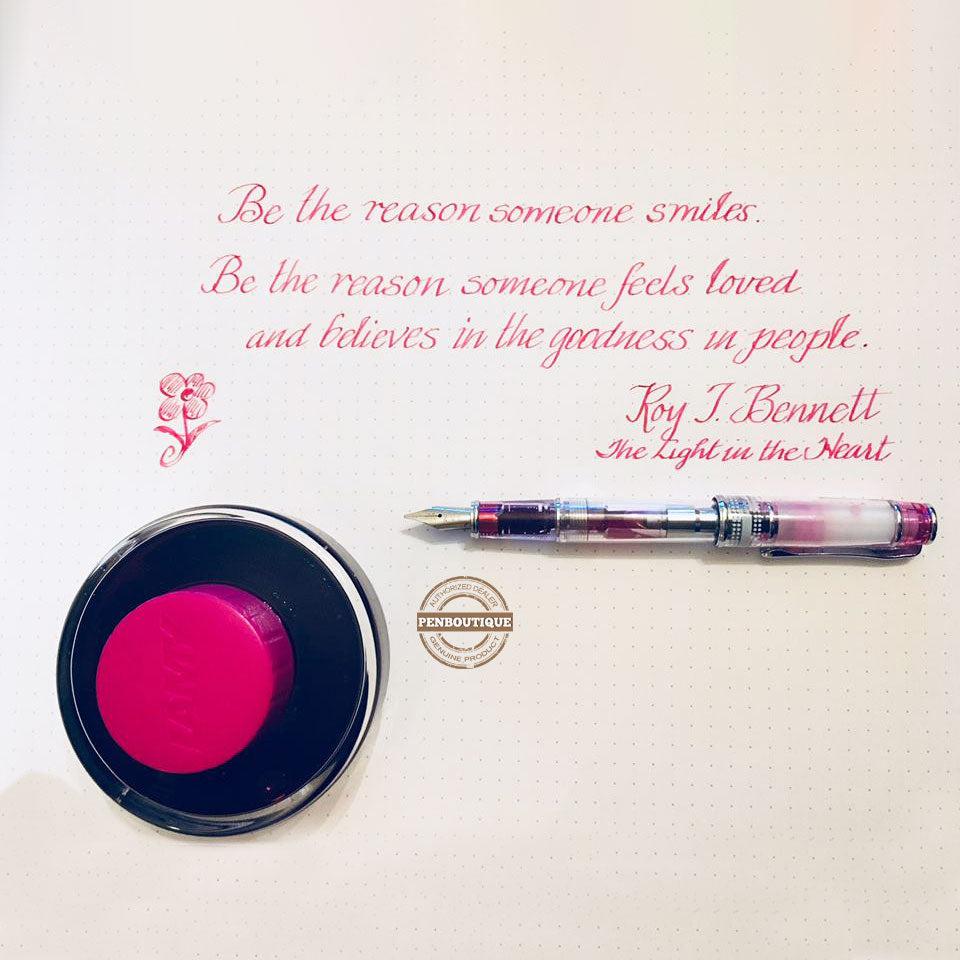 Be the reason someone smiles.
Be the reason someone feels loved
and believes in the goodness in people.
Roy T. Bennett
The Light in the Heart
AUTHORIZED DEALER
PENBOUTIQUE
GENUINE PRODUCT
LAMY